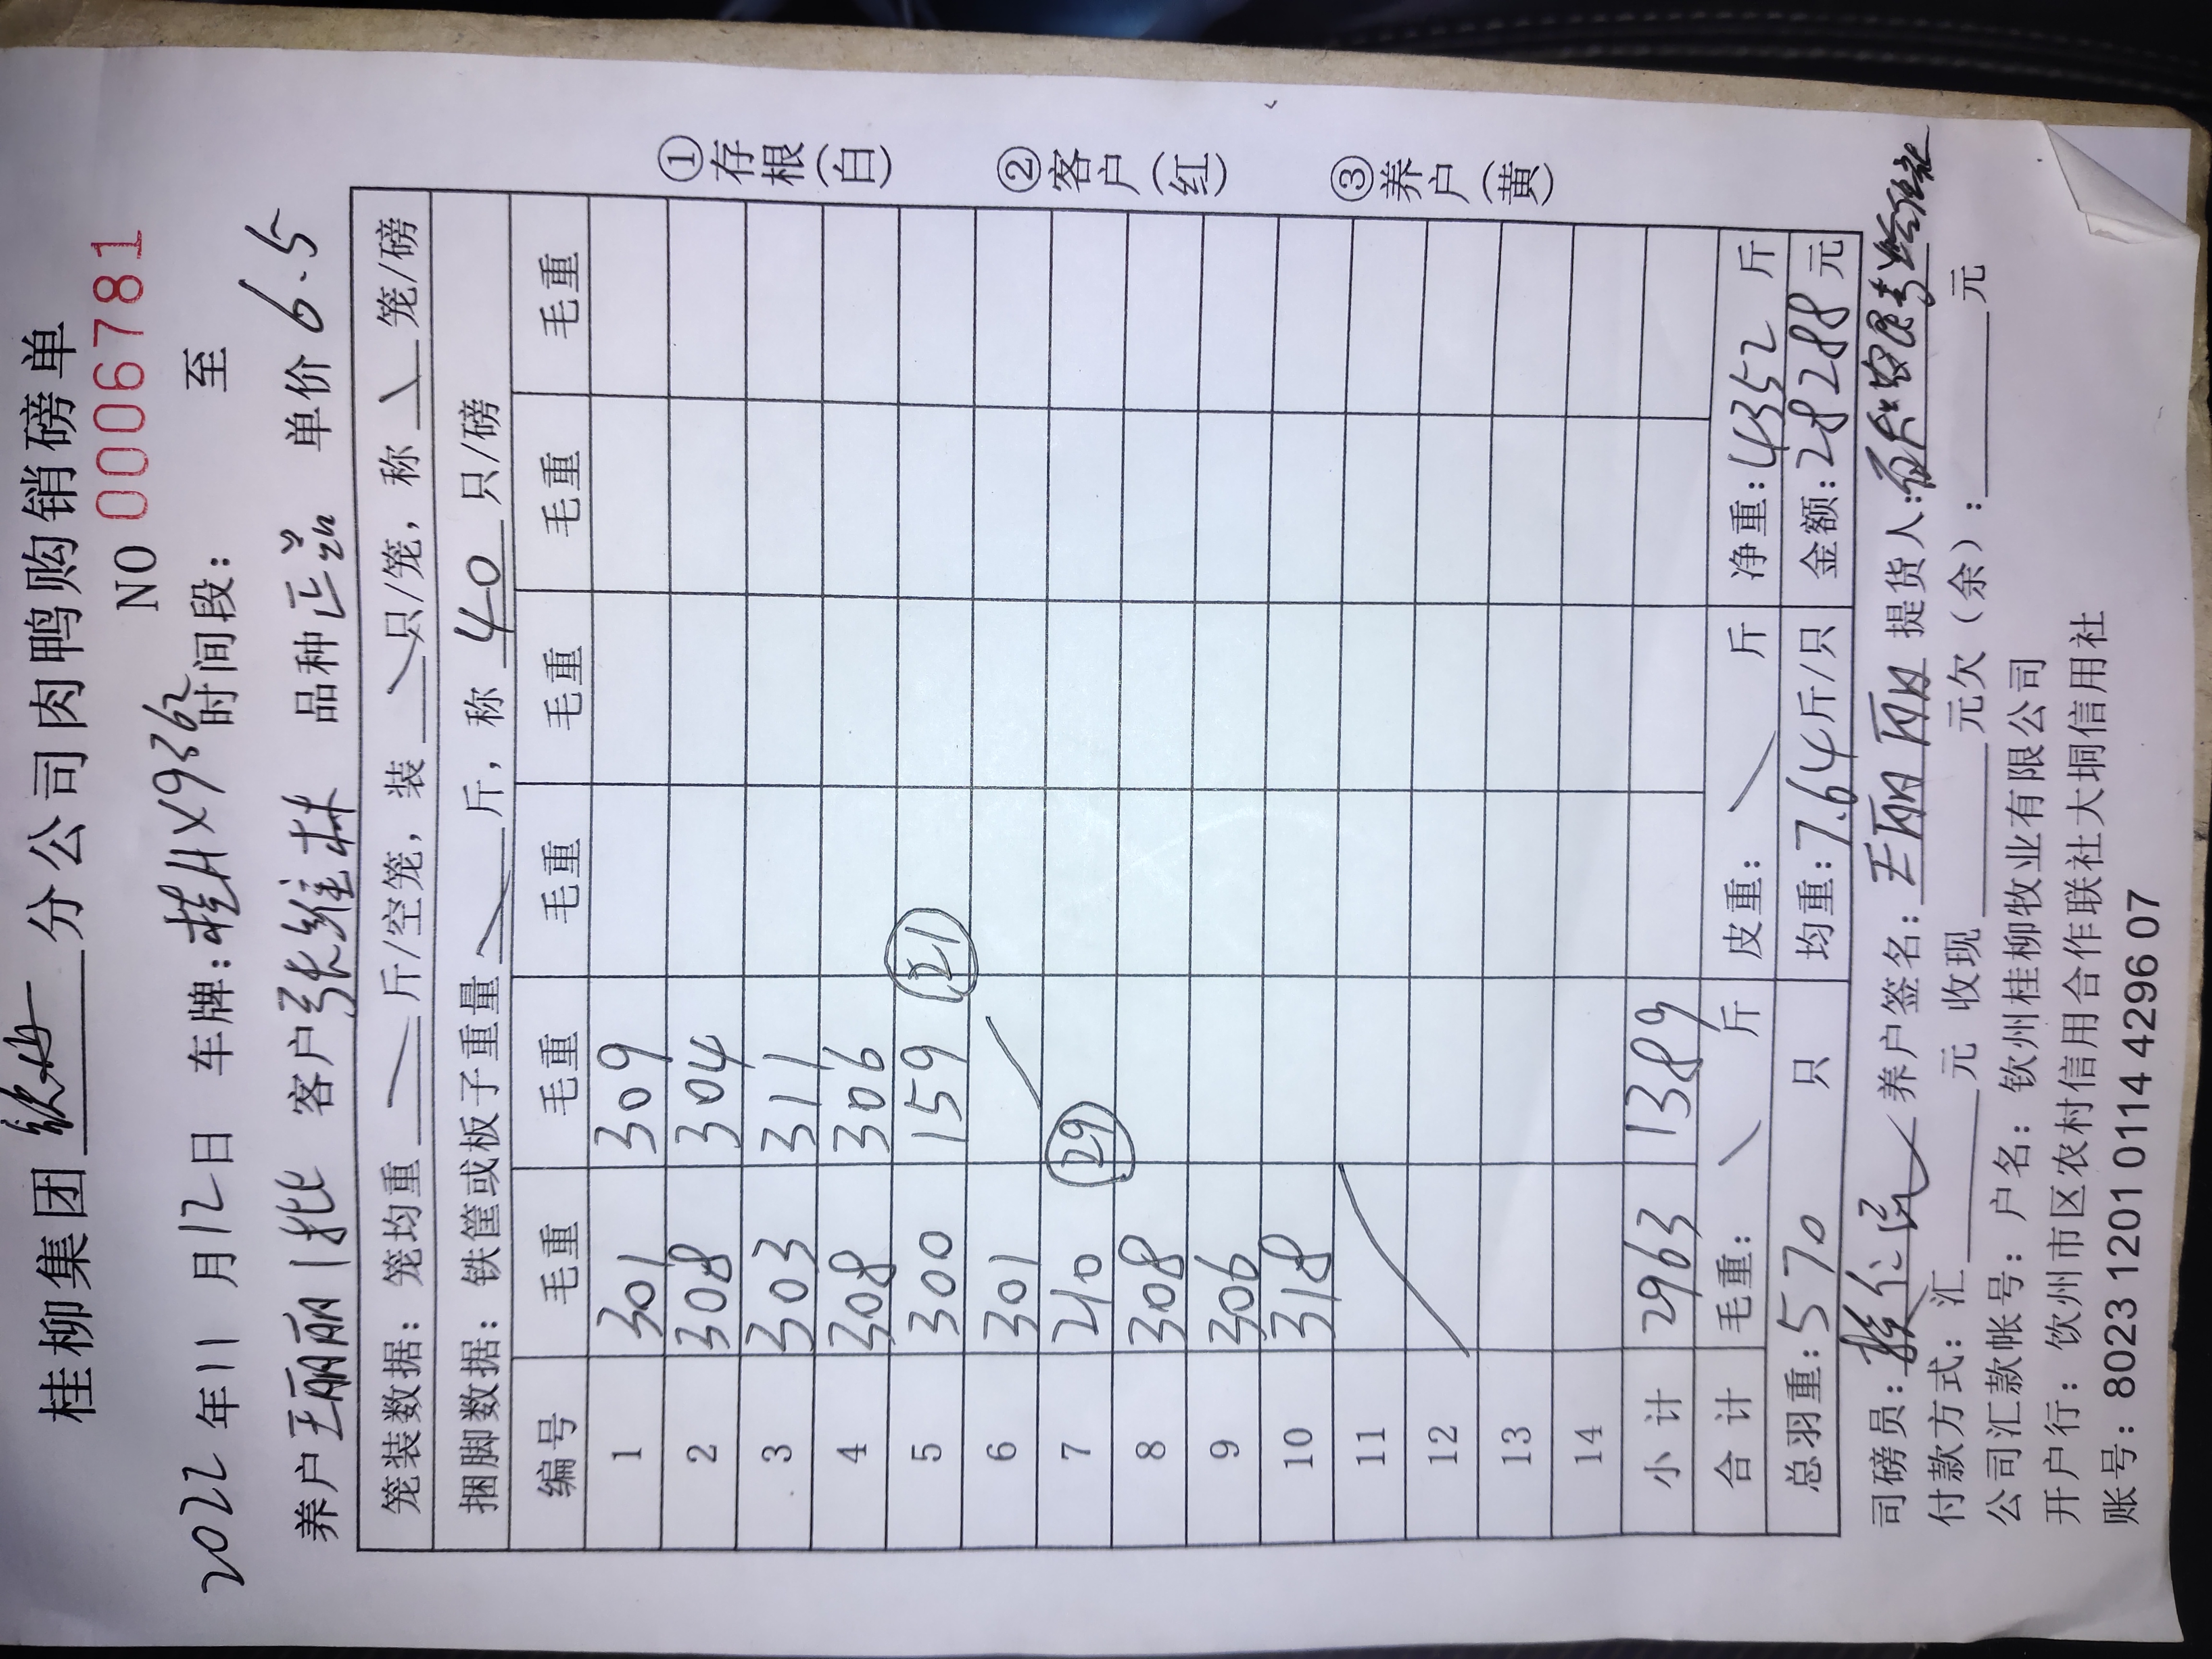 桂柳集团 钦州 分公司肉鸭购销磅单
NO 0006781
2022年11月12日 车牌:桂HX9362 时间段: 至
养户 王丽丽1批 客户 张维林 品种 单价 6.5
笼装数据: 笼均重 斤/空笼, 装 只/笼, 称 笼/磅
捆脚数据: 铁筐或板子重量 斤, 称 40 只/磅
编号 毛重 毛重 毛重 毛重 毛重 毛重
1 301 309
2 308 304
3 303 311
4 308 306
5 300 159 21
6 301
7 210 29
8 308
9 306
10 318
11
12
13
14
小计 2963 1389
合计 毛重: 斤 皮重: 斤 净重:4352 斤
总羽重:570 只 均重:7.64斤/只 金额:28288元
司磅员: 养户签名:王丽丽 提货人:
付款方式: 汇 元 收现 元欠(余): 元
公司汇款帐号: 户名: 钦州桂柳牧业有限公司
开户行: 钦州市区农村信用合作联社大垌信用社
账号: 8023 1201 0114 4296 07
①存根(白)
②客户(红)
③养户(黄)